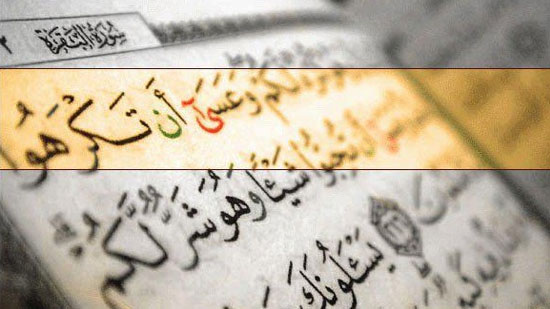 سُورَةُ البَقَرَةِ
لَّكُمْ وَعَسَىٰٓ أَن تَكْرَهُوا
تُحِبُّوا شَيْـًٔا وَهُوَ شَرٌّ لَّكُمْ
يَسْـَٔلُونَكَ